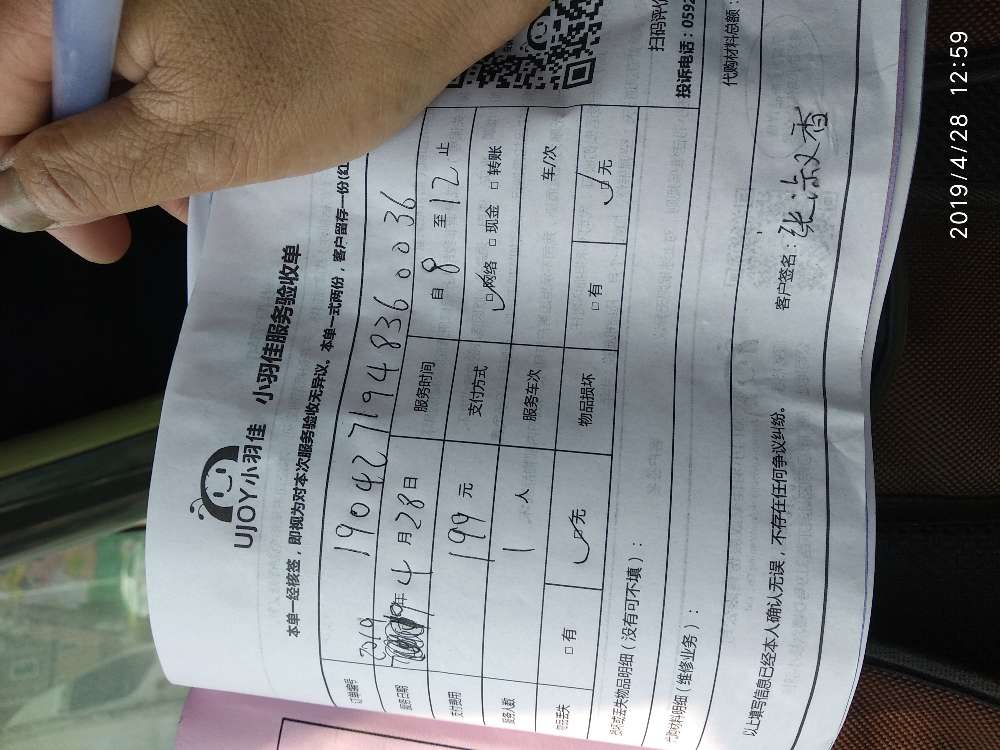 UJOY小羽佳 小羽佳服务验收单
本单一经核签，即视为对本次服务验收无异议。本单一式两份，客户留存一份(红
订单编号 19042719483600036
服务日期 2019年4月28日 服务时间 自8至12止
支付费用 199元 支付方式 ☑网络 □现金 □转账
服务人数 1人 服务车次 车/次
物品丢失 □有 ☑无 物品损坏 □有 ☑无
损坏或丢失物品明细（没有可不填）：
代购材料明细（维修业务）：
扫码评价
投诉电话：0592
代购材料总额：
以上填写信息已经本人确认无误，不存在任何争议纠纷。
客户签名：张淑香
2019/4/28 12:59